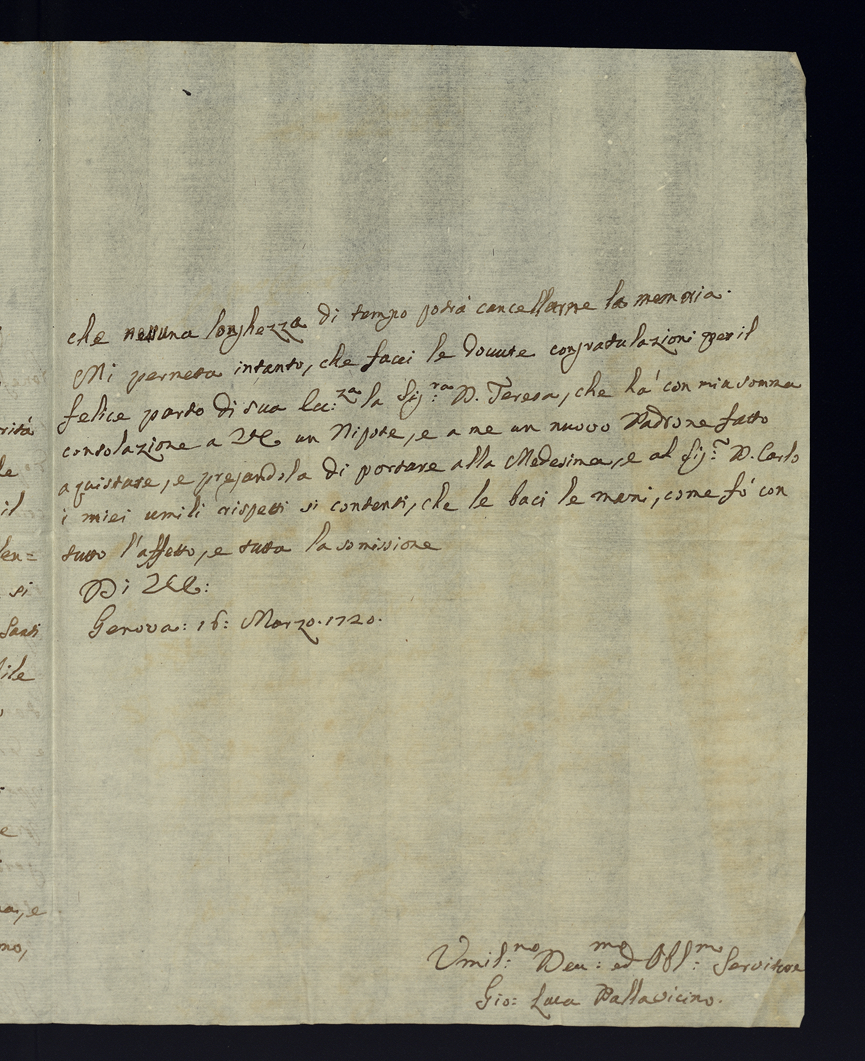 che nessuna longhezza di tempo potrà cancellarne la memoria.
Mi permetta intanto, che facci le dovute congratulazioni per il
felice parto di sua Ecc:za la Sig:ra D. Teresa, che hà con mia somma
consolazione a VE un Nipote, e a me un nuovo Padrone fatto
aquistare, e pregandola di portare alla Medesima, e al Sig:r D. Carlo
i miei umili rispetti si contenti, che le baci le mani, come fò con
tutto l'affetto, e tutta la somissione
Di VE:
Genova: 16: Marzo. 1720.
Umil:mo Deu:mo ed Obl:mo Servitore
Gio: Luca Pallavicino.
rità
le
il
len=
si
Santi
bile
e
na, e
mo,